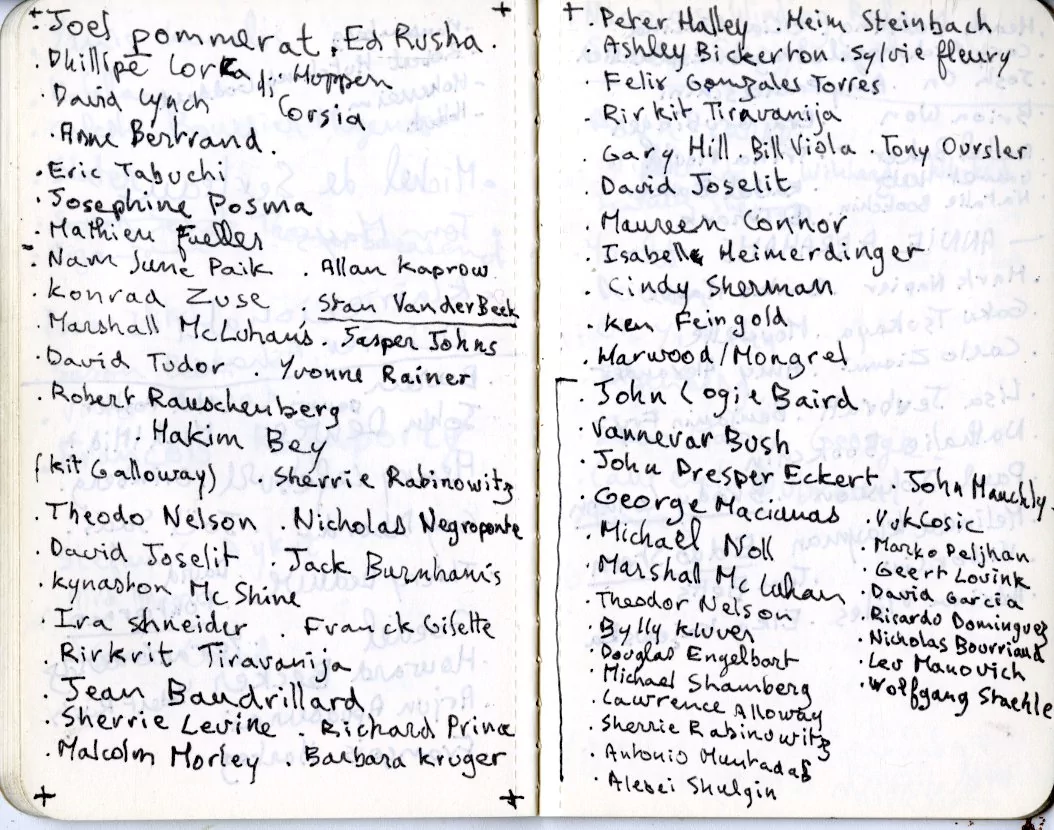 · Joel pommerat · Ed Rusha ·
· Phillipe Lorca di Hoppen
· David Lynch Corsia
· Anne Bertrand.
· Eric Tabuchi
· Josephine Posma
· Mathieu
· Nam June Paik · Allan Kaprow
· Konrad Zuse Stan VanDerBeek
· Marshall McLuhan's · Jasper Johns
· David Tudor · Yvonne Rainer
· Robert Rauschenberg
· Hakim Bey
(kit Galloway) · Sherrie Rabinowitz
· Theodo Nelson · Nicholas Negroponte
· David Joselit · Jack Burnham's
· kynaston McShine
· Ira shneider · Franck Gilette
· Rirkrit Tiravanija
· Jean Baudrillard
· Sherrie Levine · Richard Prince
· Malcolm Morley · Barbara kruger
· Peter Halley · Heim Steinbach
· Ashley Bickerton · Sylvie fleury
· Felix Gonzales Torres
· Rirkit Tiravanija
· Gary Hill · Bill Viola · Tony Oursler
· David Joselit
· Maureen Connor
· Isabelle Heimerdinger
· Cindy Sherman
· Ken Feingold
· Harwood/Mongrel
· John Logie Baird
· Vannevar Bush
· John Presper Eckert · John Mauchly
· George Maciunas · Vuk Cosic
· Michael Noll · Marko Peljhan
· Marshall McLuhan · Geert Lovink
· Theodor Nelson · David Garcia
· Bylly kluver · Ricardo Dominguez
· Douglas Engelbart · Nicholas Bourriaud
· Michael Shamberg · Lev Manovich
· Lawrence Alloway · Wolfgang Staehle
· Sherrie Rabinowitz
· Antonio Muntadas
· Alexei Shulgin